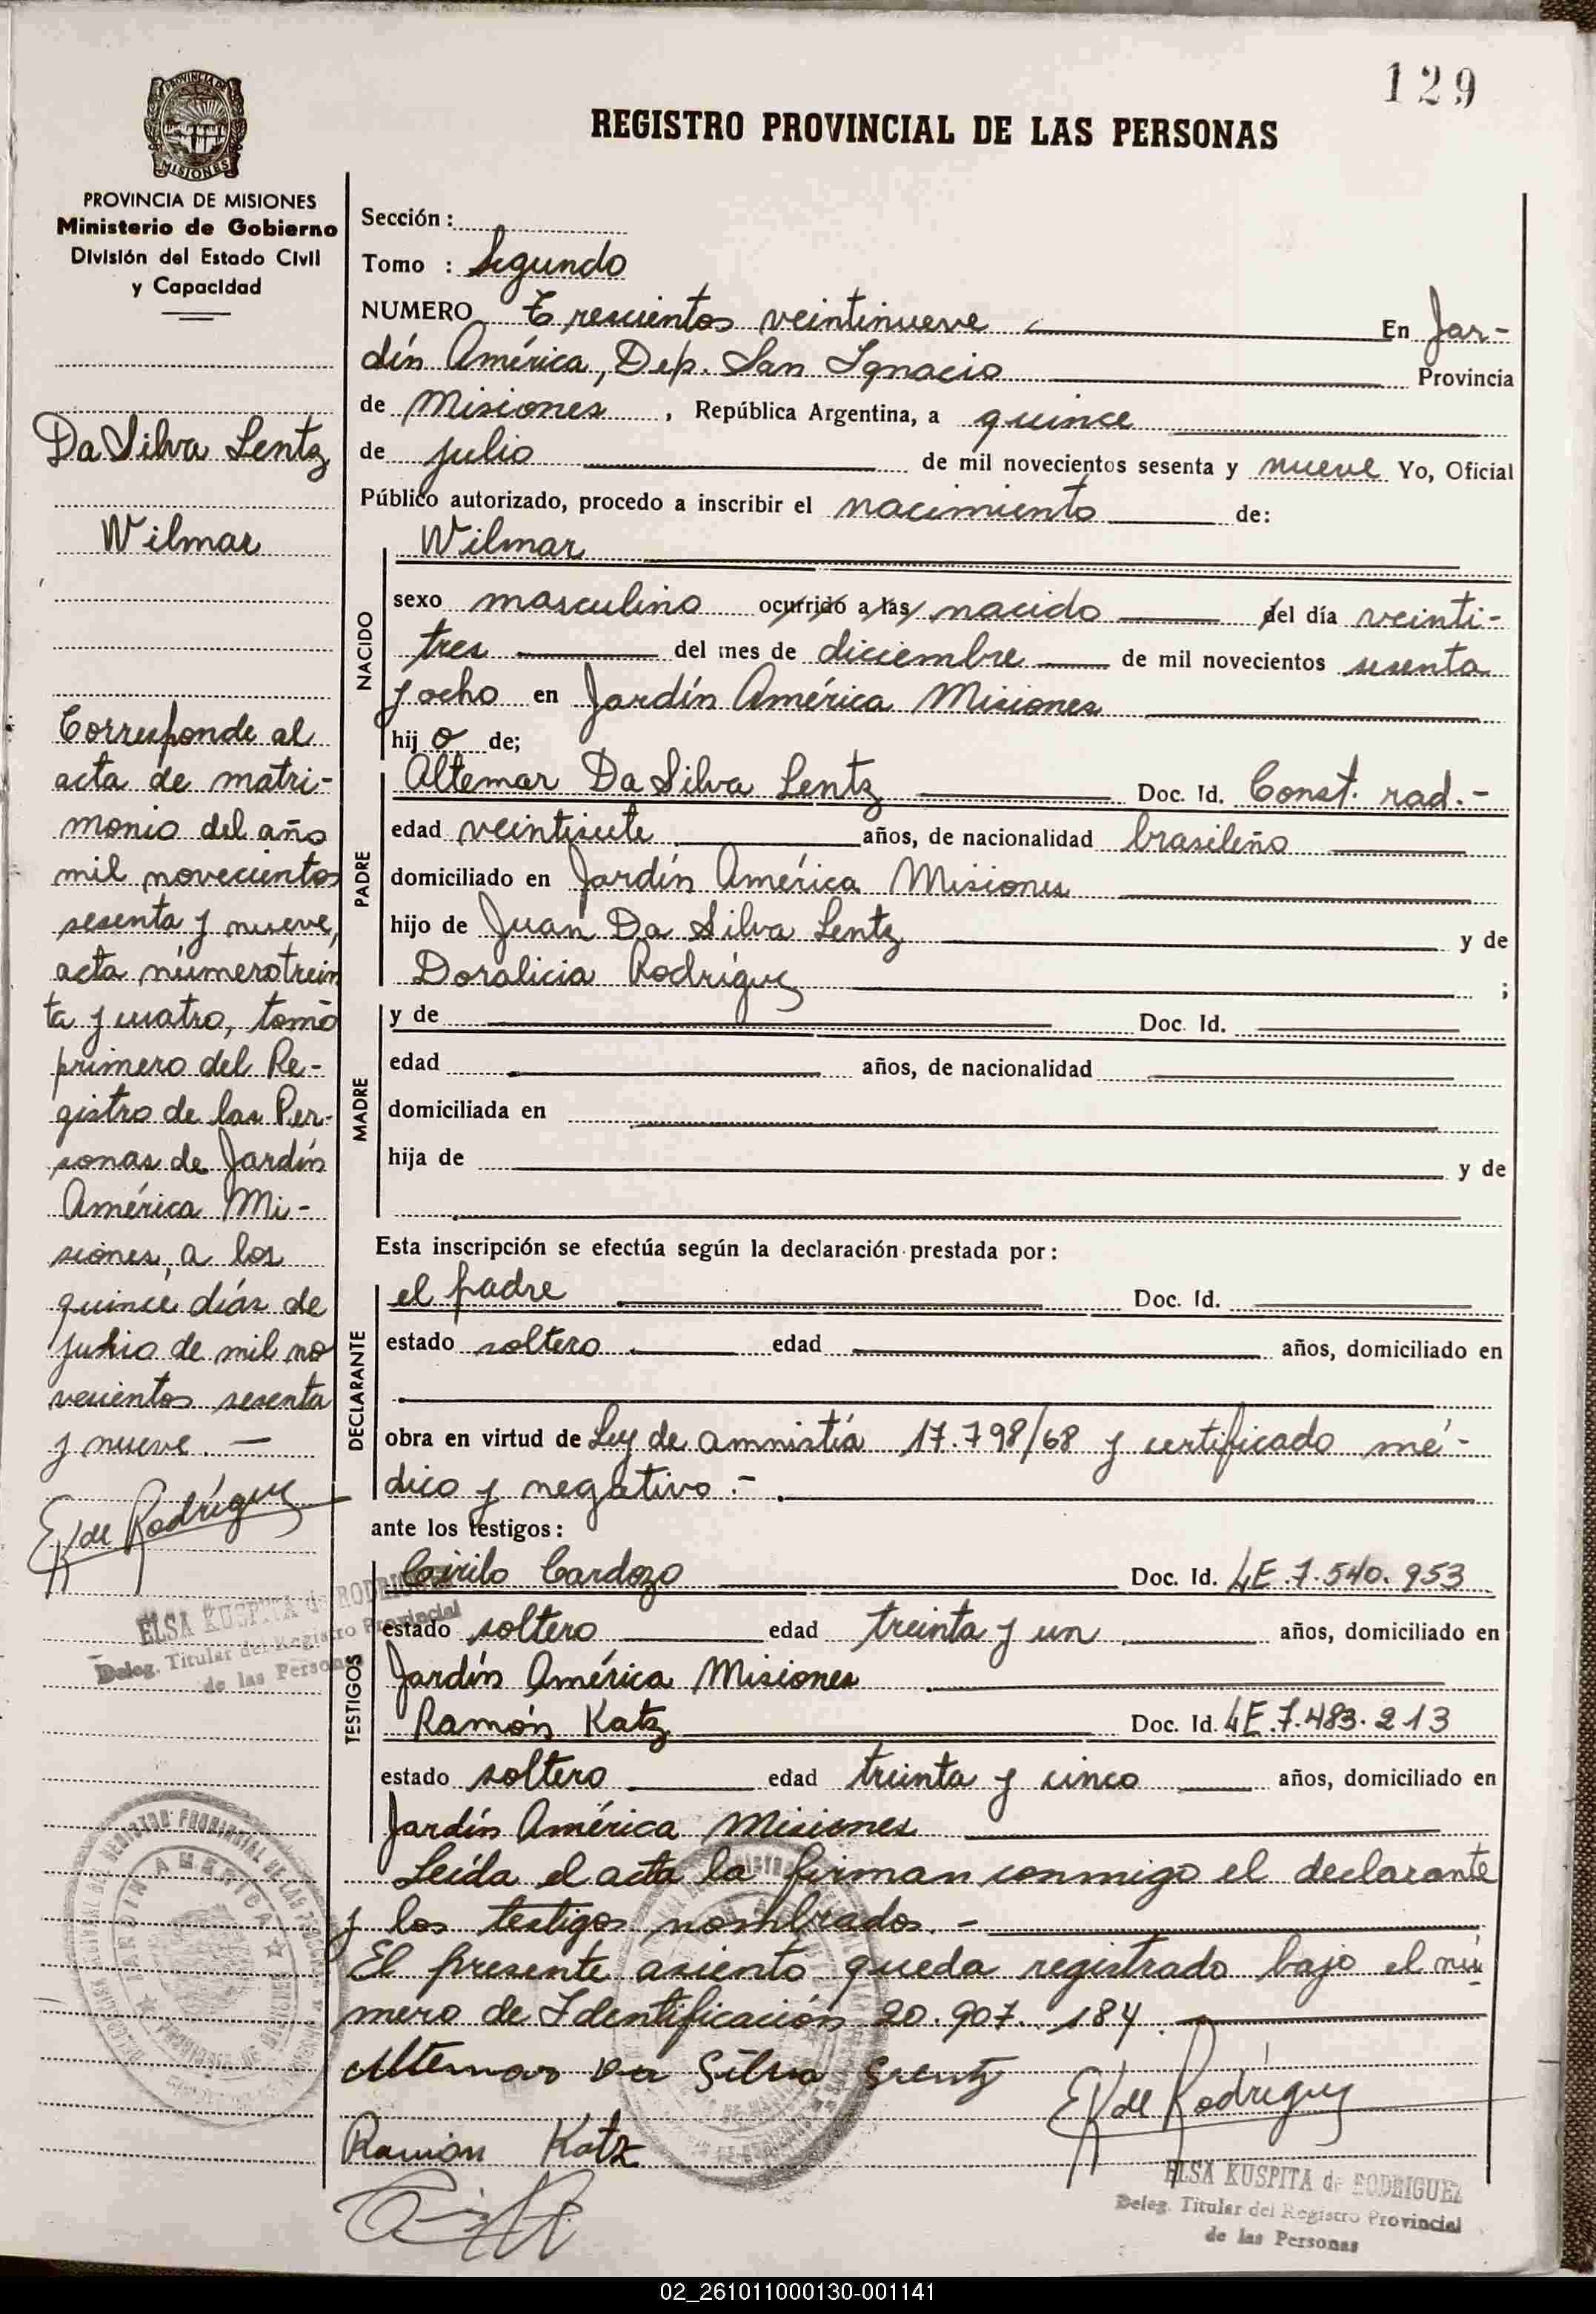 129
REGISTRO PROVINCIAL DE LAS PERSONAS
PROVINCIA DE MISIONES
PROVINCIA DE MISIONES
Ministerio de Gobierno
División del Estado Civil
y Capacidad
Da Silva Lentz
Wilmar
Corresponde al
acta de matri-
monio del año
mil novecientos
sesenta y nueve,
acta número trein
ta y cuatro, tomo
primero del Re-
gistro de las Per-
sonas de Jardín
América Mi-
siones, a los
quince días de
de mil no
vecientos sesenta
y nueve. —
EK de Rodríguez
ELSA KUSPITA de RODRIGUEZ
Deleg. Titular del Registro Provincial
de las Personas
Sección :
Tomo : Segundo
NUMERO Trescientos veintinueve En Jar-
dín América, Dep. San Ignacio Provincia
de Misiones , República Argentina, a quince
de julio de mil novecientos sesenta y nueve Yo, Oficial
Público autorizado, procedo a inscribir el nacimiento de:
NACIDO
Wilmar
sexo masculino ocurrido a las nacido del día veinti-
tres del mes de diciembre de mil novecientos sesenta
y ocho en Jardín América Misiones
hij o de;
PADRE
Altemar Da Silva Lentz Doc. Id. Const. rad.-
edad veintisiete años, de nacionalidad brasileño
domiciliado en Jardín América Misiones
hijo de Juan Da Silva Lentz y de
Doralicia Rodríguez ;
MADRE
y de Doc. Id.
edad años, de nacionalidad
domiciliada en
hija de y de
Esta inscripción se efectúa según la declaración prestada por:
DECLARANTE
el padre Doc. Id.
estado soltero edad años, domiciliado en
obra en virtud de Ley de amnistía 17.798/68 y certificado mé-
dico y negativo.-
ante los testigos:
TESTIGOS
Cirilo Cardozo Doc. Id. LE 7.540.953
estado soltero edad treinta y un años, domiciliado en
Jardín América Misiones
Ramón Katz Doc. Id. LE.7.483.213
estado soltero edad treinta y cinco años, domiciliado en
Jardín América Misiones
Leída el acta la firman conmigo el declarante
y los testigos nombrados.-
El presente asiento queda registrado bajo el nú
mero de Identificación 20.907.184.
Altemar da Silva
EK de Rodríguez
Ramón Katz
ELSA KUSPITA de RODRIGUEZ
Deleg. Titular del Registro Provincial
de las Personas
02_261011000130-001141